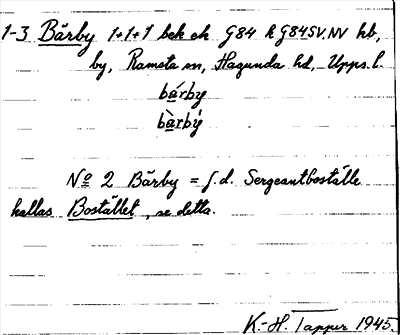 1-3 Bärby 1+1+1 bek ek G84 k G84SV.NV hb,
by, Ramsta sn, Hagunda hd, Upps. l.
bárby
bàrbẏ
No 2 Bärby = f.d. Sergeantboställe
kallas Bostället, se detta.
K.-H. Tapper 1945.